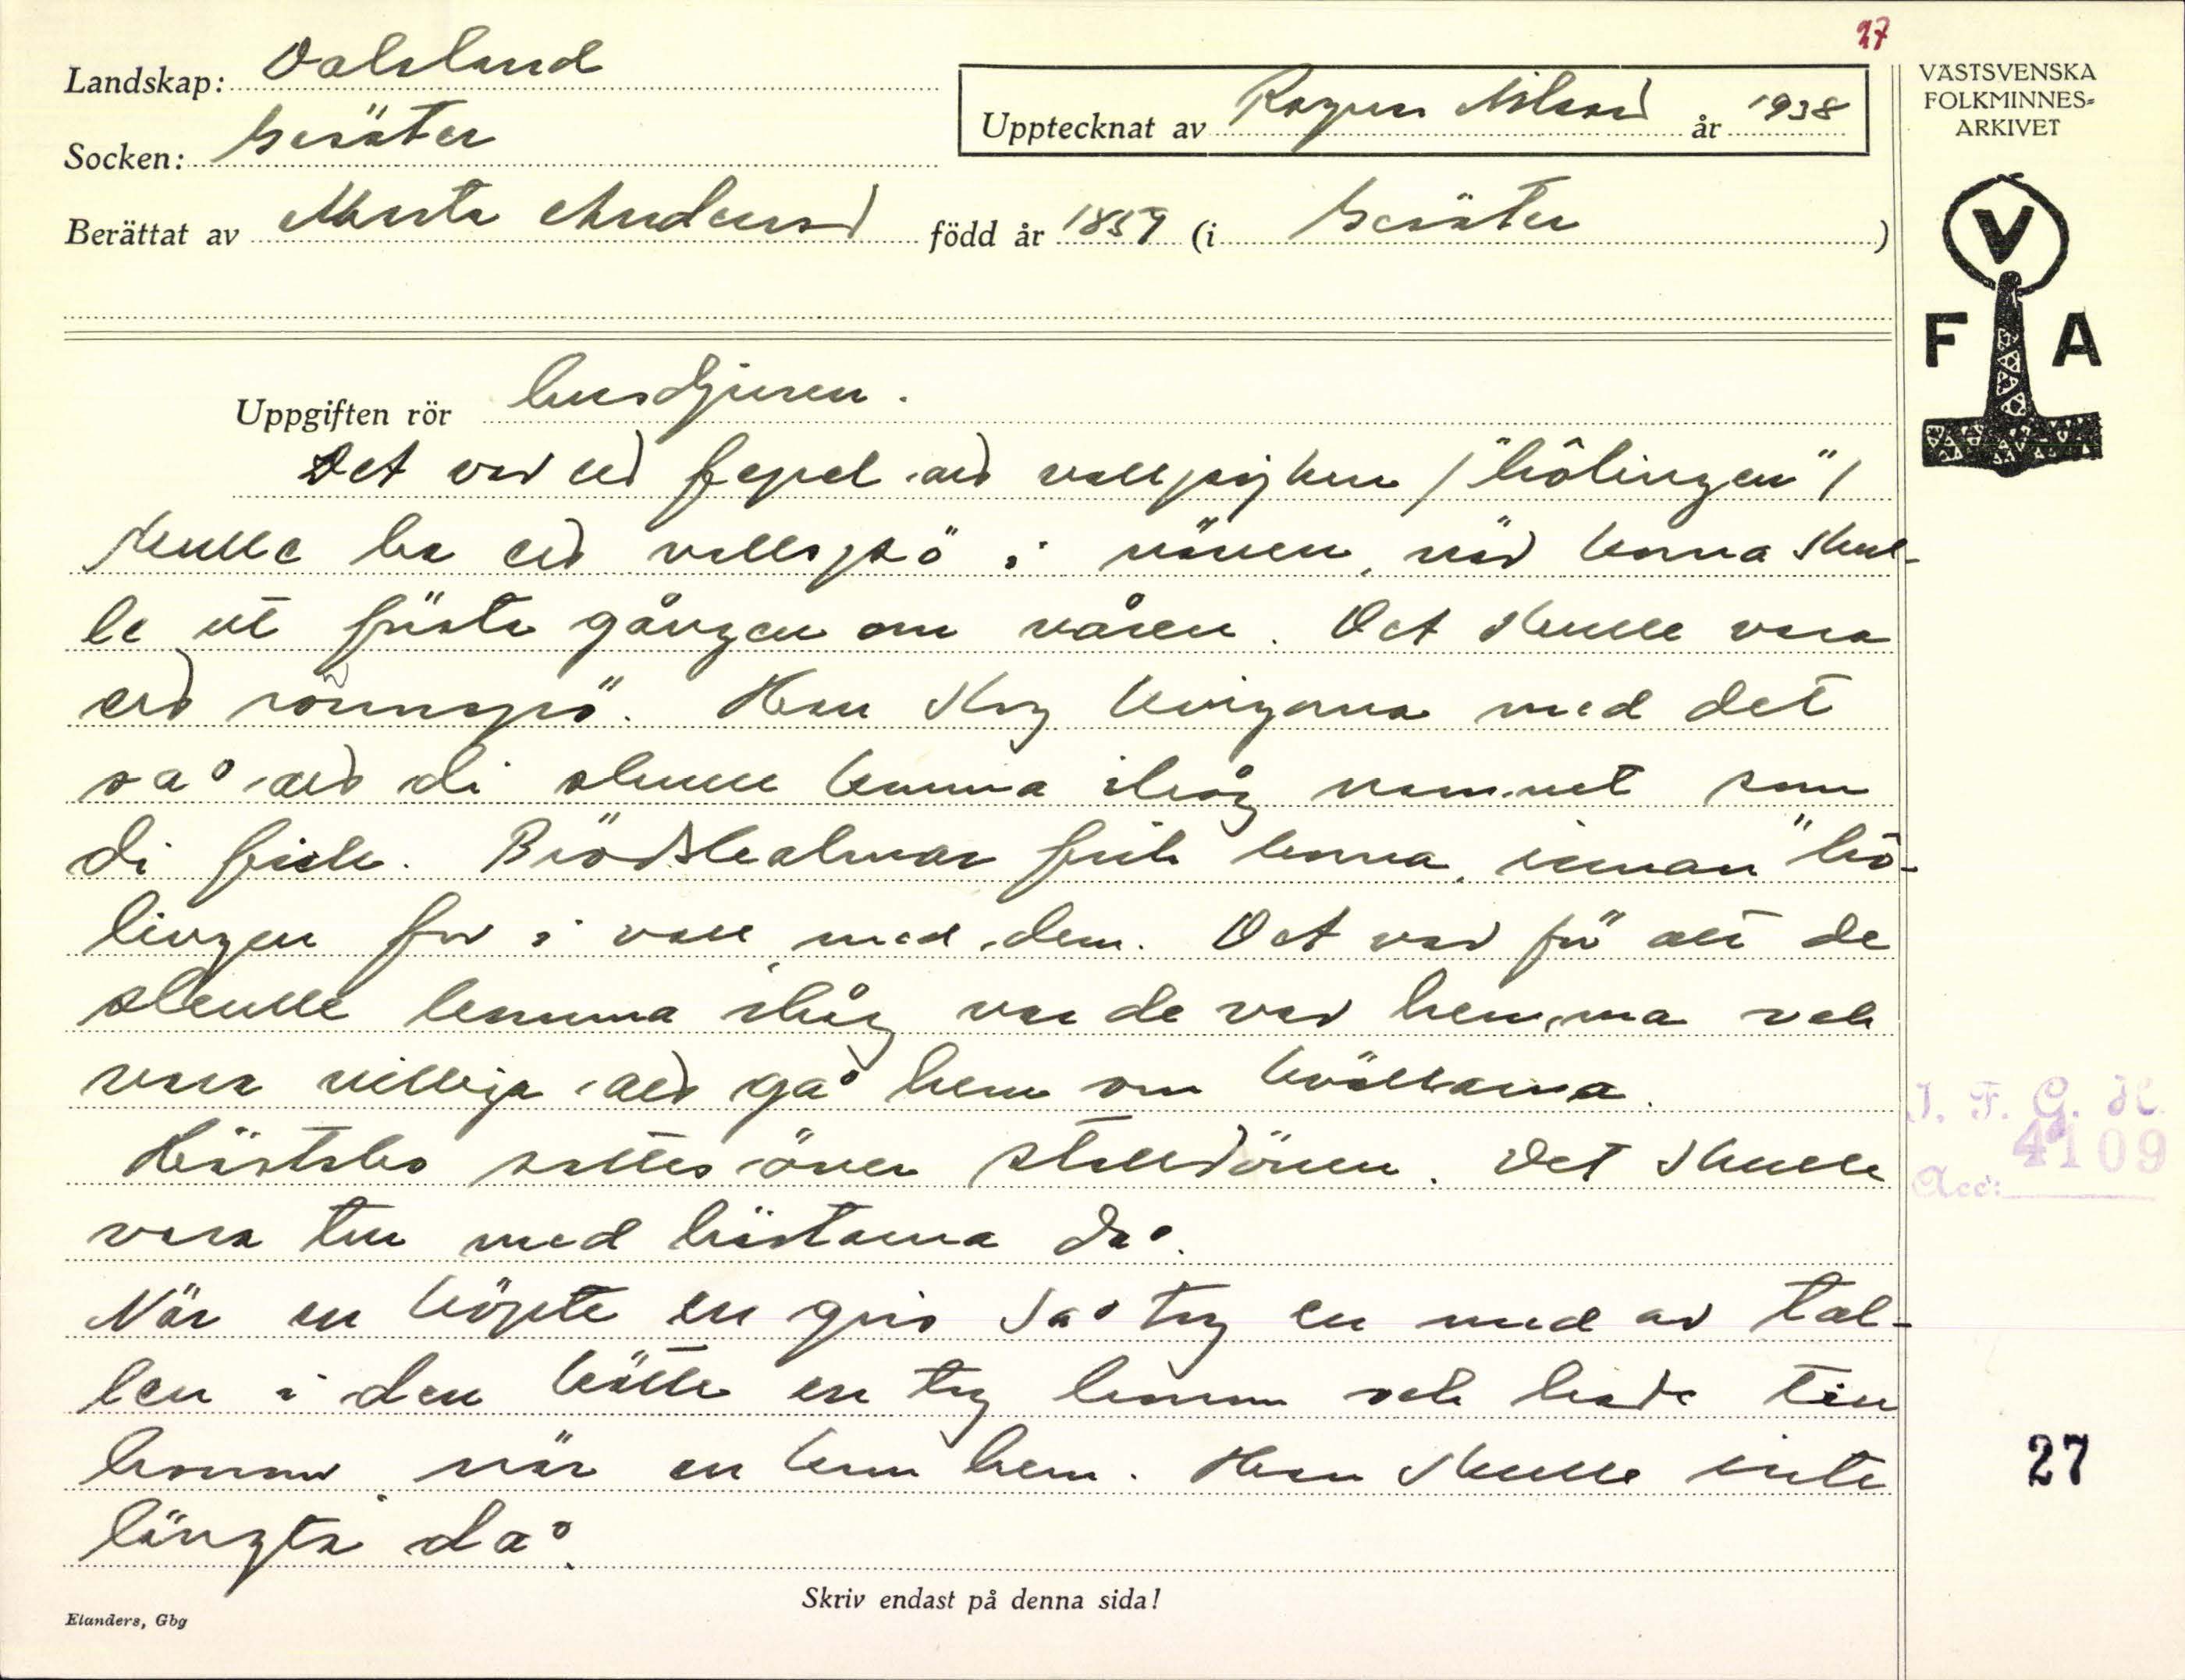 27
Landskap: Dalsland
Socken: Gesäter
Upptecknat av Ragnar Nilsson år 1938
VÄSTSVENSKA
FOLKMINNES=
ARKIVET
Berättat av Marta Andersson född år 1859 (i Gesäter)
V
F A
Uppgiften rör husdjuren.
Det var ed fepel and vallpojken /"hôlingen"/
skulle ha ed vallspö i näven, när korna skul-
le ut första gången om våren. Det skulle vara
ed rönnspö. Han slog kvigorna med det
så att di skulle komma ihåg namnet som
di fick. Brödskalmar fick korna, innan "hô-
lingen for i vall med dem. Det var för att de
skulle komma ihåg var de var hemma och
vara villiga att gå hem om kvällarna.
Hästsko sattes över stalldören. Det skulle
vara tur med hästarna då.
När en köpte en gris så tog en med av tal-
len i den kätte en tog honom och hade till
honom när en kom hem. Han skulle inte
längta då.
I. F. G. H.
4109
Acc:
27
Skriv endast på denna sida!
Elanders, Gbg